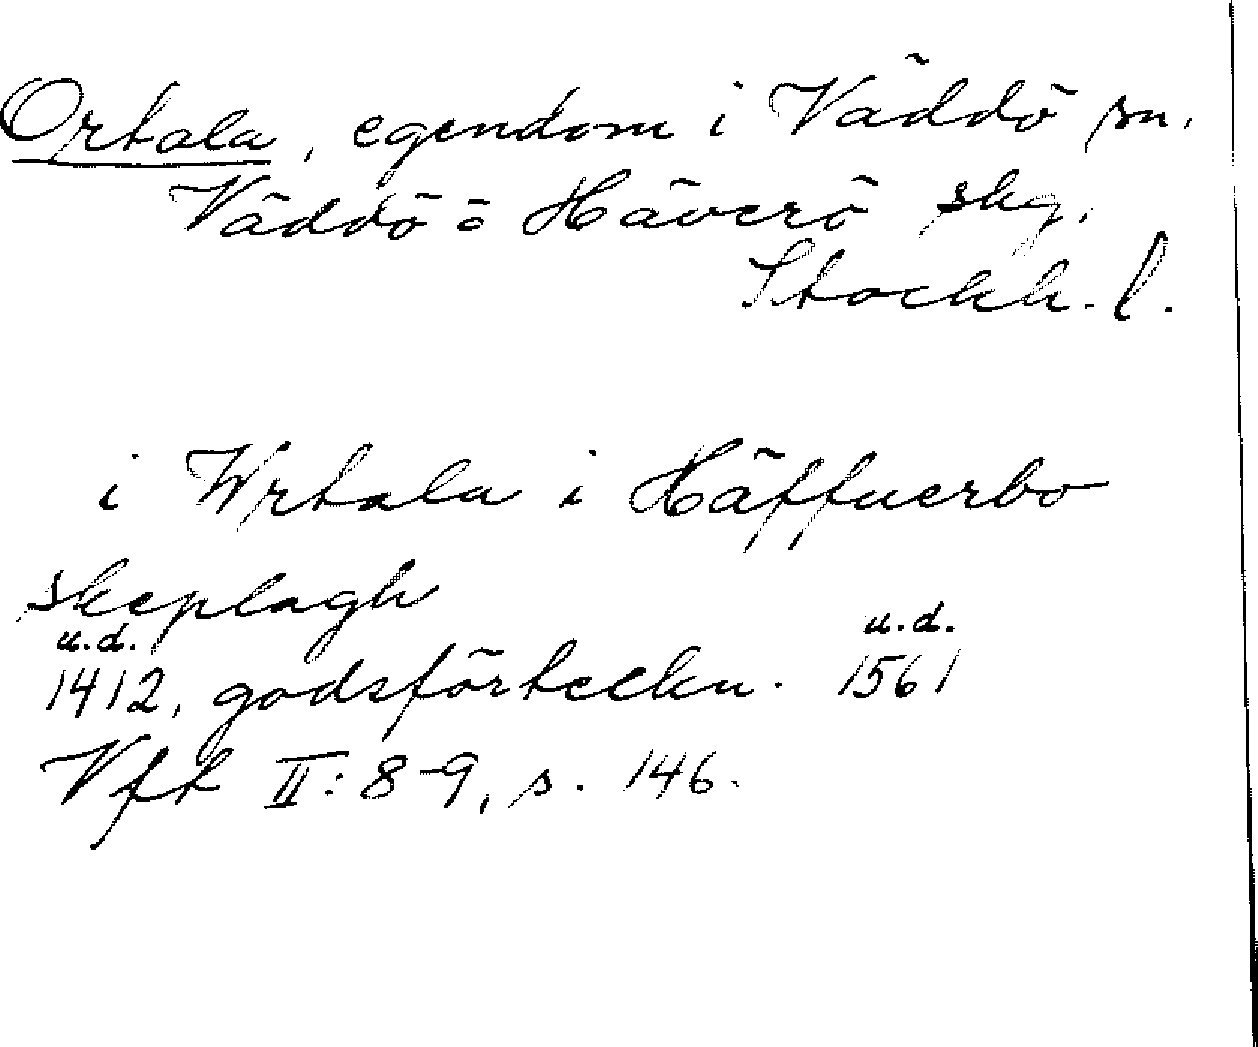 Ortala, egendom i Väddö sn.
Väddö o Häverö skg.
Stockh. l.
i Wrtala i Häffuerbo
skeplagh
u.d. u.d.
1412, godsförteckn. 1561
Vft II: 8-9, s. 146.